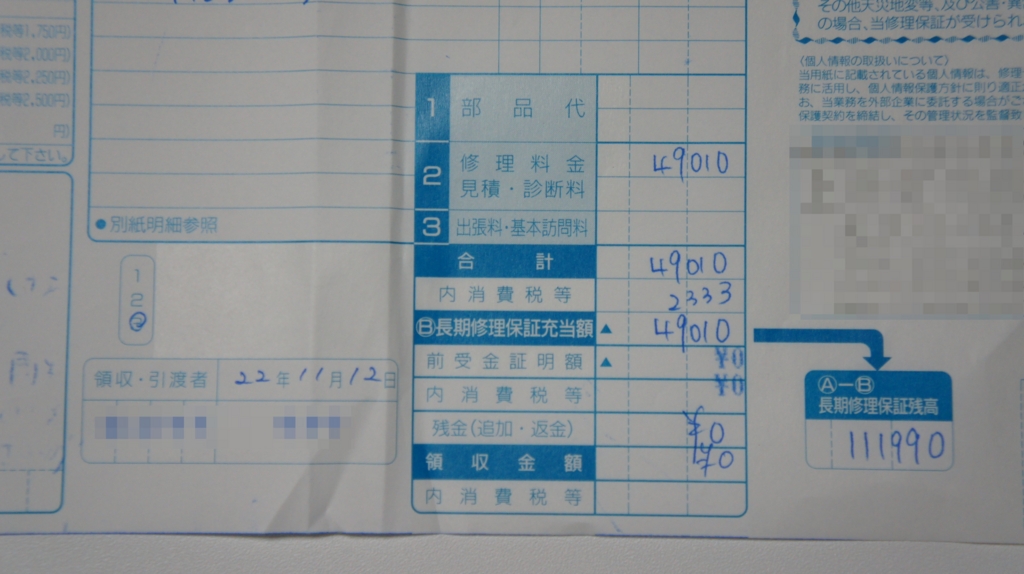 税等1,750円)
税等2,000円)
税等2,250円)
税等2,500円)
円)
して下さい。
●別紙明細参照
1
2
領収・引渡者 22年11月12日
1 部品代
2 修理料金 49010
見積・診断料
3 出張料・基本訪問料
合計 49010
内消費税等 2333
Ⓑ長期修理保証充当額 ▲ 49010
前受金証明額 ▲ ¥0
内消費税等 ¥0
残金(追加・返金) ¥0
領収金額 ¥0
内消費税等
その他天災地変等、及び公害・異
の場合、当修理保証が受けられ
〈個人情報の取扱いについて〉
当用紙に記載されている個人情報は、修理
務に活用し、個人情報保護方針に則り適正
お、当業務を外部企業に委託する場合がご
保護契約を締結し、その管理状況を監督致
Ⓐ−Ⓑ
長期修理保証残高
111990